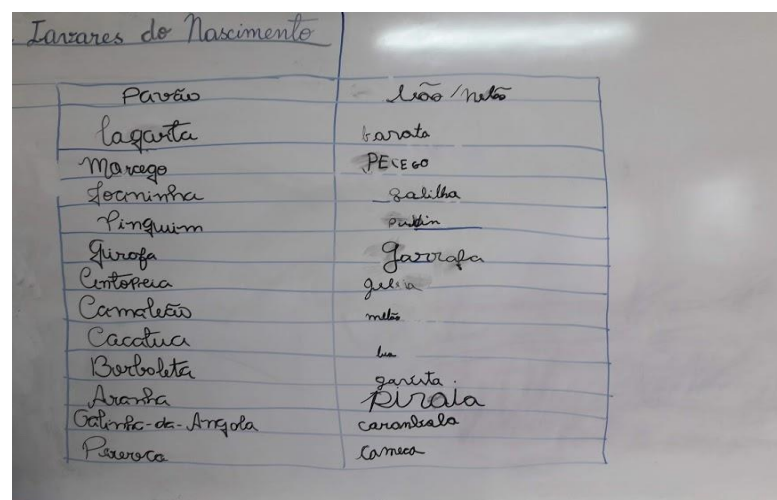 Tavares do Nascimento
Pavão leão/melão
lagarta barata
Morcego PECEGO
Joaninha galilha
Pinguim pudin
Girafa garrafa
Centopeia
Camaleão melão
Cacatua lua
Borboleta garota
Aranha piraia
Galinha-da-Angola carambola
Perereca caneca